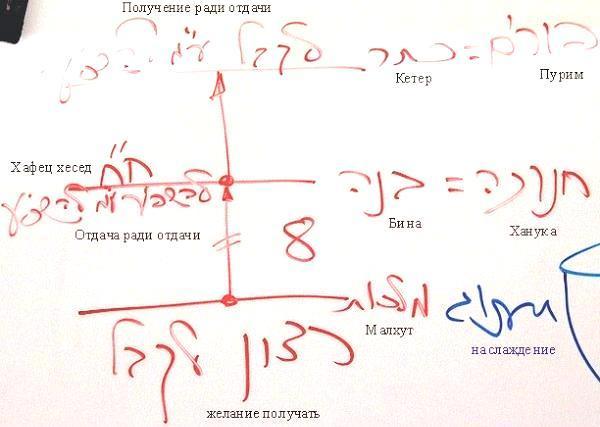 Получение ради отдачи
פורים = כתר לקבל ע"מ להשפיע
Кетер Пурим
Хафец хесед ח"ח
חנוכה = בנה
להשפיע ע"מ להשפיע
Бина Ханука
Отдача ради отдачи
= 8
מלכות
Малхут
תענוג
наслаждение
רצון לקבל
желание получать